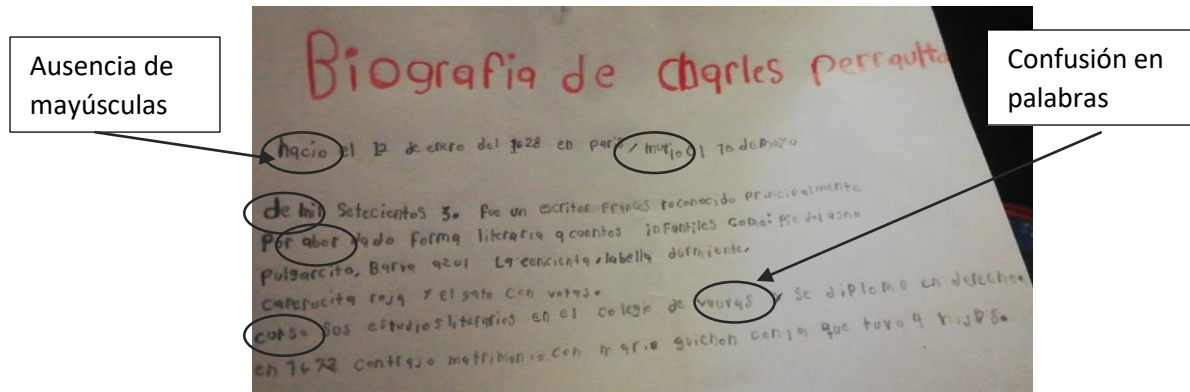 Ausencia de
mayúsculas
Confusión en
palabras
Biografia de charles perraulto
nacio el 12 de enero del 1628 en paris, murio el 16 de mayo
de mil Setecientos 3. fue un escritor Frances reconocido principalmente
por aber dado forma literaria a cuentos infantiles como: pie del asno
pulgarcito, Barva azul La cenicienta, labella durmiente,
caperucita roja y el gato con votas.
curso sus estudios literarios en el colegio de vauvas y se diplomo en derecho.
en 1672 contrajo matrimonio con marie guichon con la que tuvo 4 hijos.